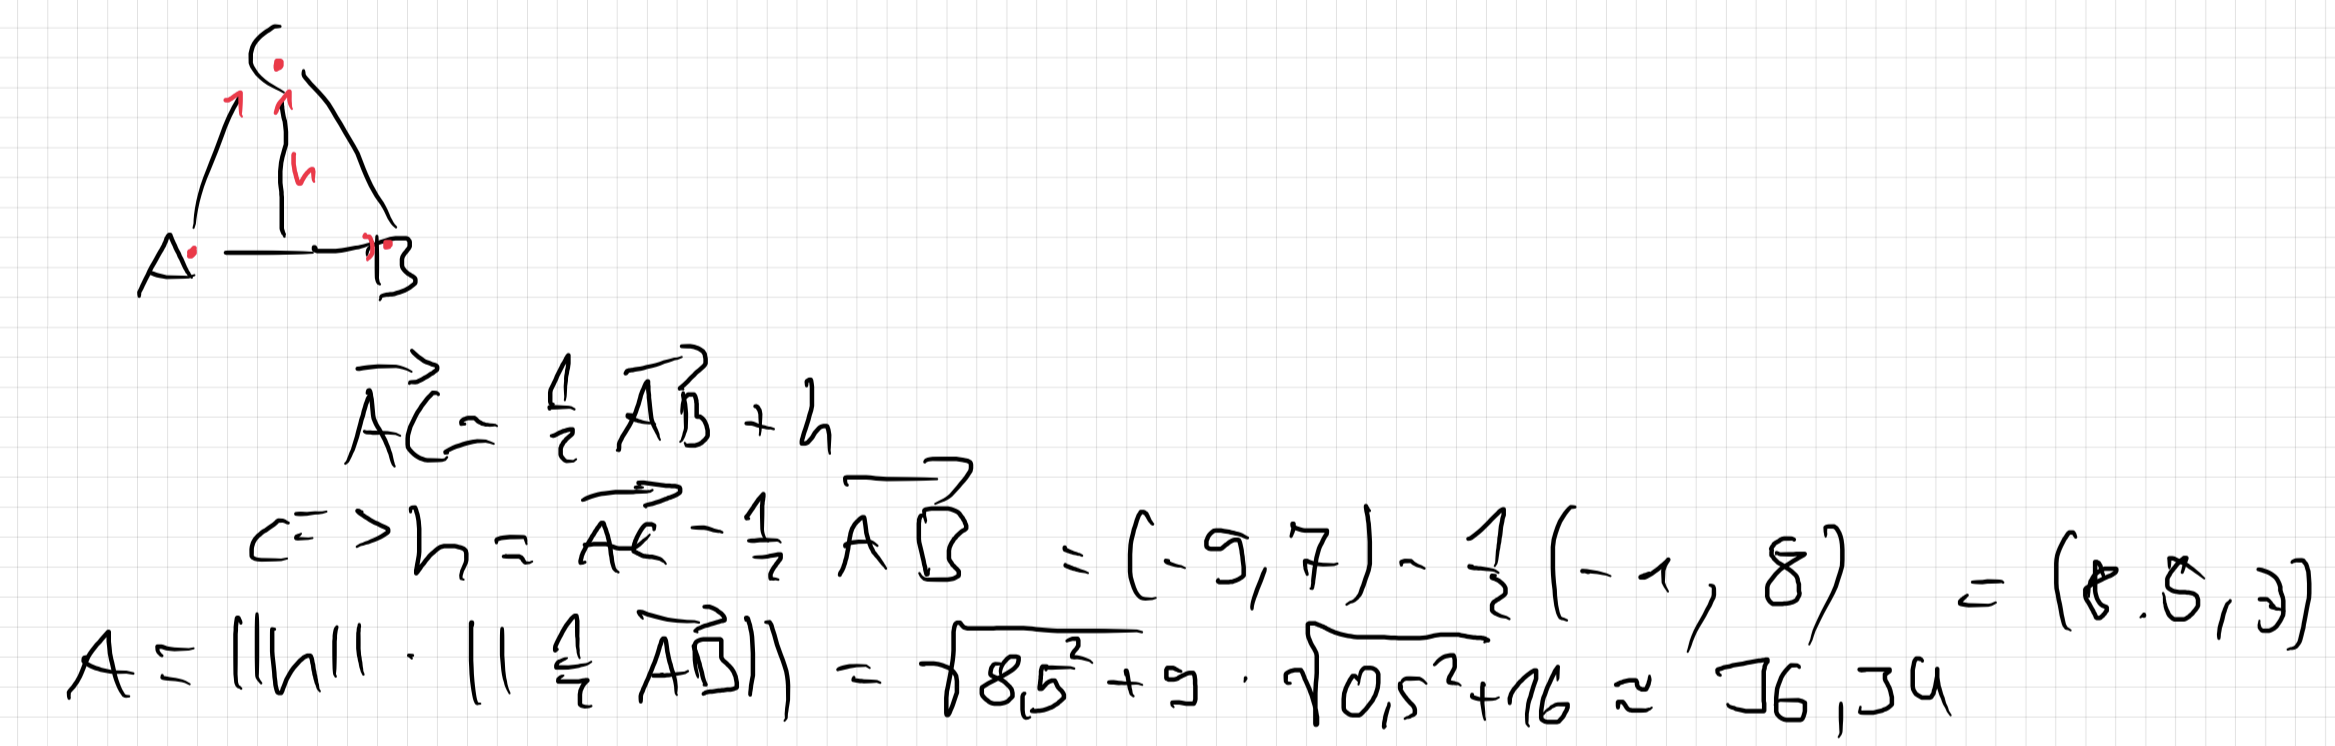 C
h
A B
AC = 1/2 AB + h
<=> h = AC - 1/2 AB = (-9,7) - 1/2 (-1, 8) = (8.5, 3)
A = ||h|| · ||1/2 AB|| = √(8,5² + 9) · √(0,5² + 16) ≈ 36,34